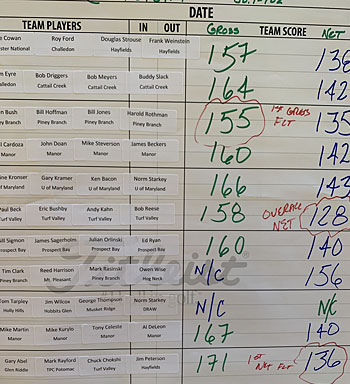 DATE
TEAM PLAYERS IN OUT GROSS TEAM SCORE NET
Cowan Roy Ford Douglas Strouse Frank Weinstein 157
Challedon Hayfields Hayfields
Eyre Bob Driggers Bob Meyers Buddy Slack 164 142
Challedon Cattail Creek Cattail Creek Cattail Creek
Bush Bill Hoffman Bill Jones Harold Rothman 155 1st GROSS FLT 135
Piney Branch Piney Branch Piney Branch
Cardoza John Doan Mike Steverson James Beckers 160 142
Manor Manor Manor Manor
Kronser Gary Kramer Ken Bacon Norm Starkey 166 143
U of Maryland U of Maryland U of Maryland U of Maryland
Paul Beck Eric Bushby Andy Kahn Bob Reese 158 OVERALL NET 128
Turf Valley Turf Valley Turf Valley Turf Valley
Bill Sigmon James Sagerholm Julian Orlinski Ed Ryan 160 140
Prospect Bay Prospect Bay Prospect Bay Prospect Bay
Tim Clark Reed Harrison Mark Rasinski Owen Wise N/C 156
Piney Branch Mt. Pleasant Hog Neck
Tom Tarpley Jim Wilcox George Thompson Norm Starkey N/C N/C
Holly Hills Hobbits Glen Musket Ridge DRAW
Mike Martin Mike Kurylo Tony Celeste Al DeLeon 167 140
Manor Manor Manor Manor
Gary Abel Mark Raylord Chuck Chokshi Jim Peterson 171 1st NET FLT 136
Glen Riddle TPC Potomac Turf Valley Hayfields